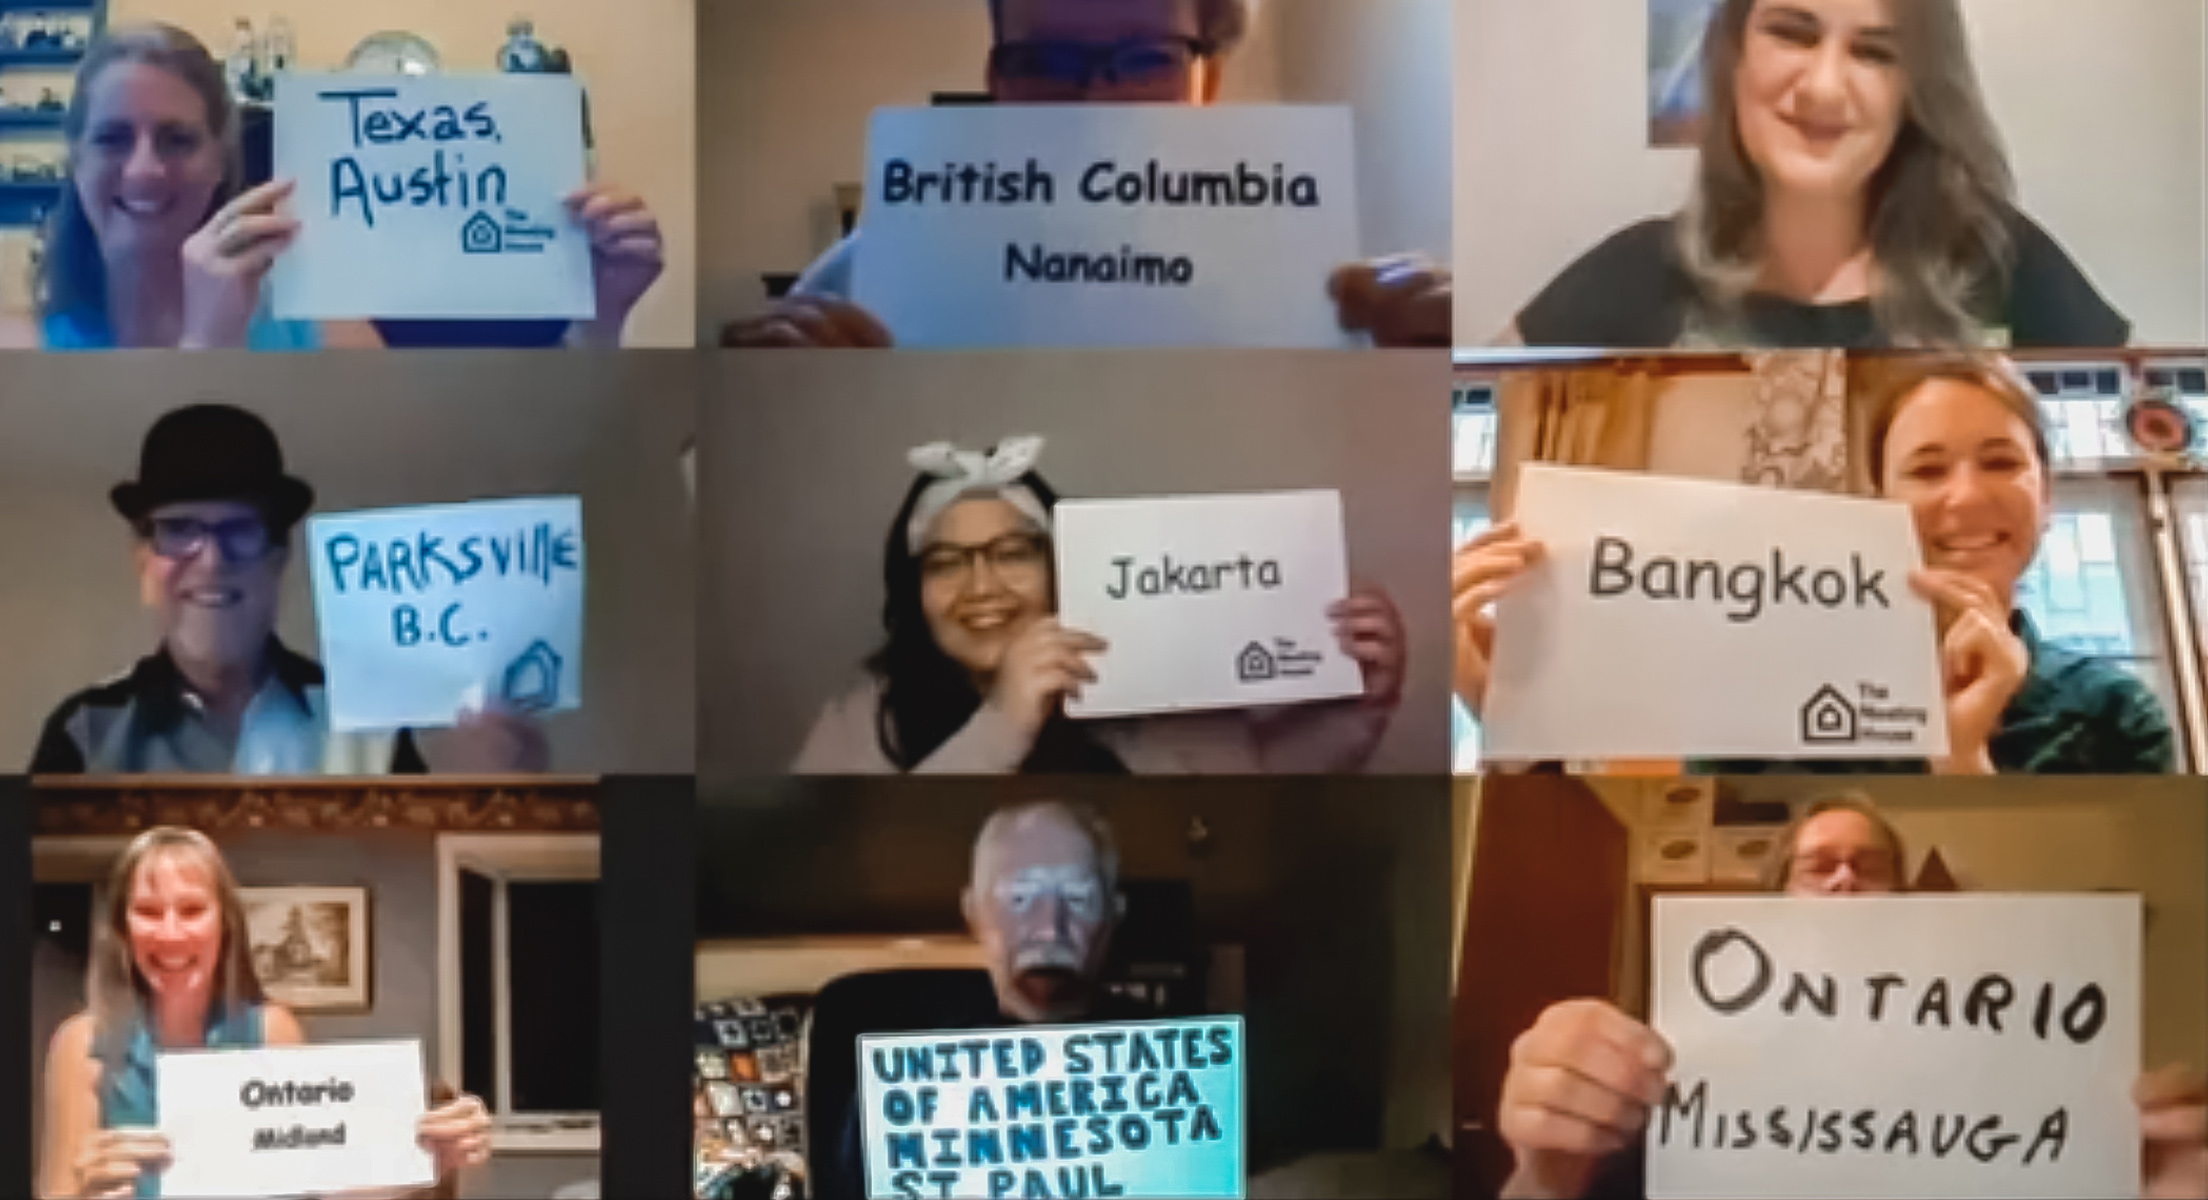 Texas,
Austin
The
Meeting
House
British Columbia
Nanaimo
PARKSVIllE
B.C.
Jakarta
The
Meeting
House
Bangkok
The
Meeting
House
Ontario
Midland
UNITED STATES
OF AMERICA
MINNESOTA
ST PAUL
ONTARIO
MISSISSAUGA